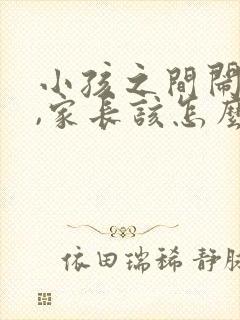 小孩之間鬧
,家長該怎麼
依田瑞稀 靜脉